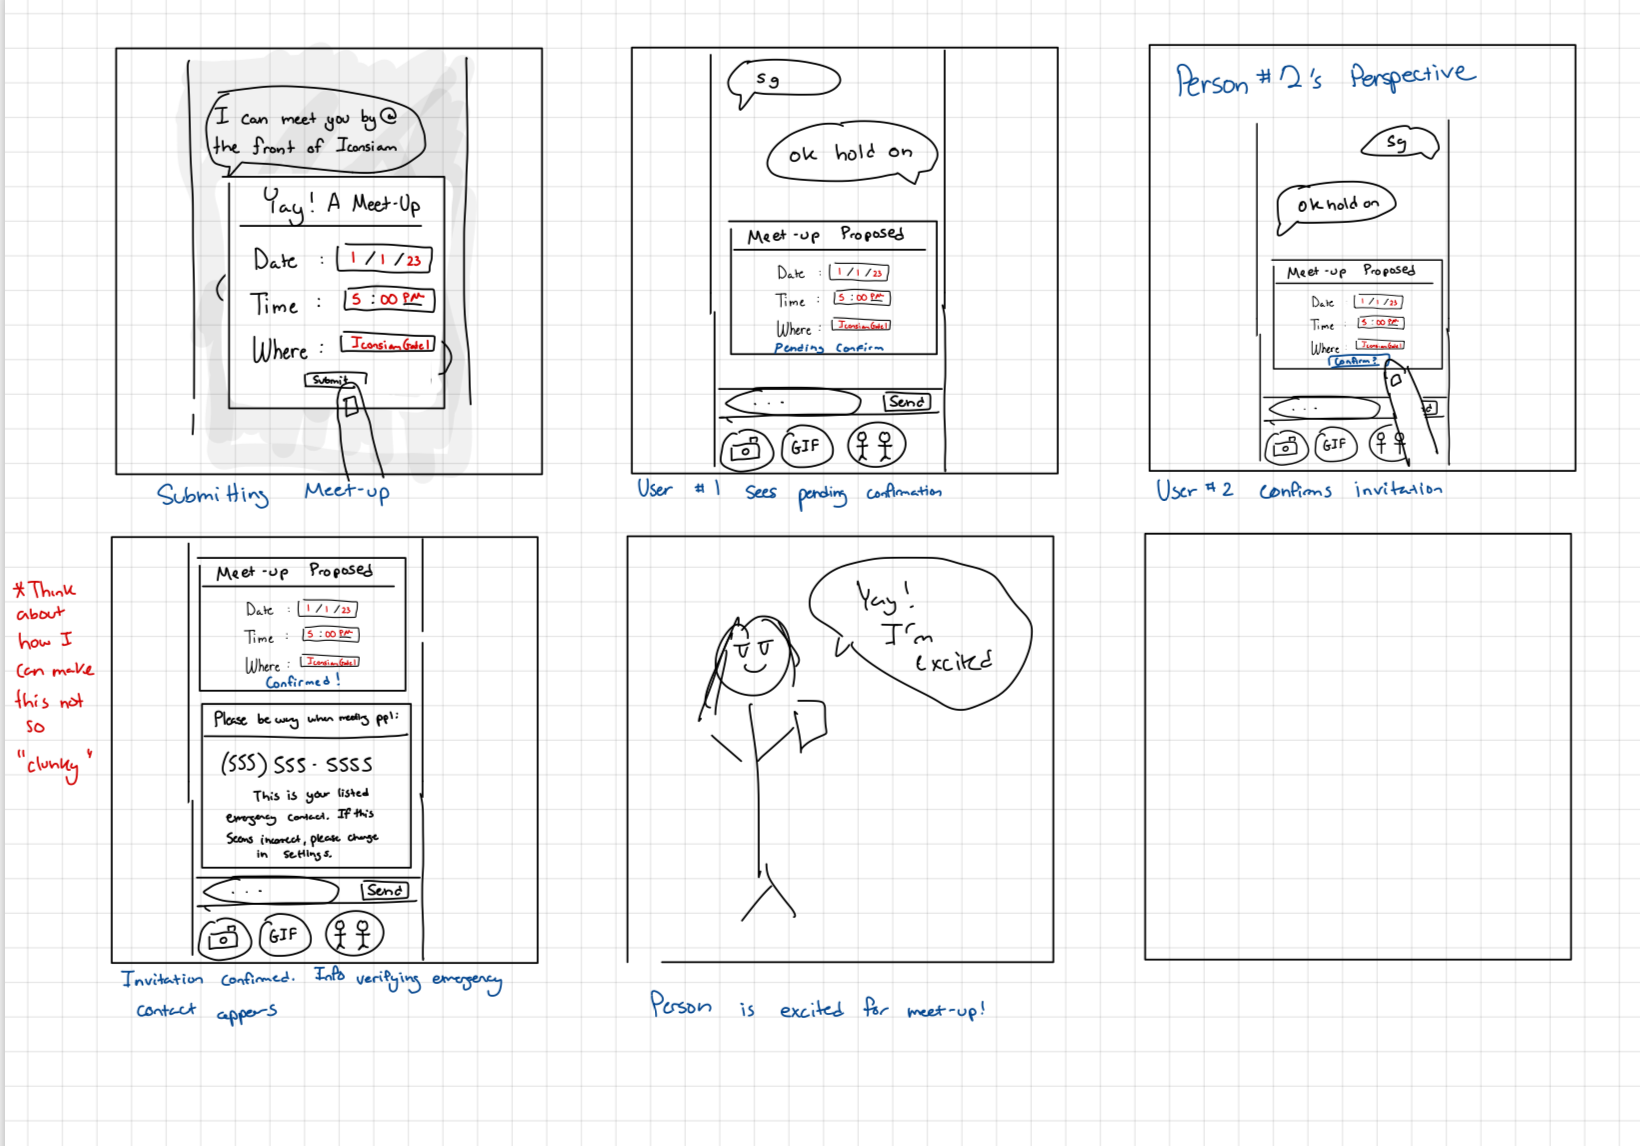 I can meet you by @
the front of Iconsiam
Yay! A Meet-Up
Date : 1/1/23
Time : 5:00 PM
Where : Iconsiam Gate1
Submit
Submitting Meet-up
sg
ok hold on
Meet-up Proposed
Date : 1/1/23
Time : 5:00 PM
Where : Iconsiam Gate1
Pending Confirm
... Send
GIF
User #1 sees pending confirmation
Person #2's Perspective
sg
ok hold on
Meet-up Proposed
Date : 1/1/23
Time : 5:00 PM
Where : Iconsiam Gate1
Confirm?
...
GIF
User #2 confirms invitation
*Think
about
how I
can make
this not
so
"clunky"
Meet-up Proposed
Date : 1/1/23
Time : 5:00 PM
Where : Iconsiam Gate1
Confirmed!
Please be wary when meeting ppl:
(555) 555-5555
This is your listed
emergency contact. If this
seems incorrect, please change
in settings.
... Send
GIF
Invitation confirmed. Info verifying emergency
contact appears
Yay!
I'm
excited
Person is excited for meet-up!